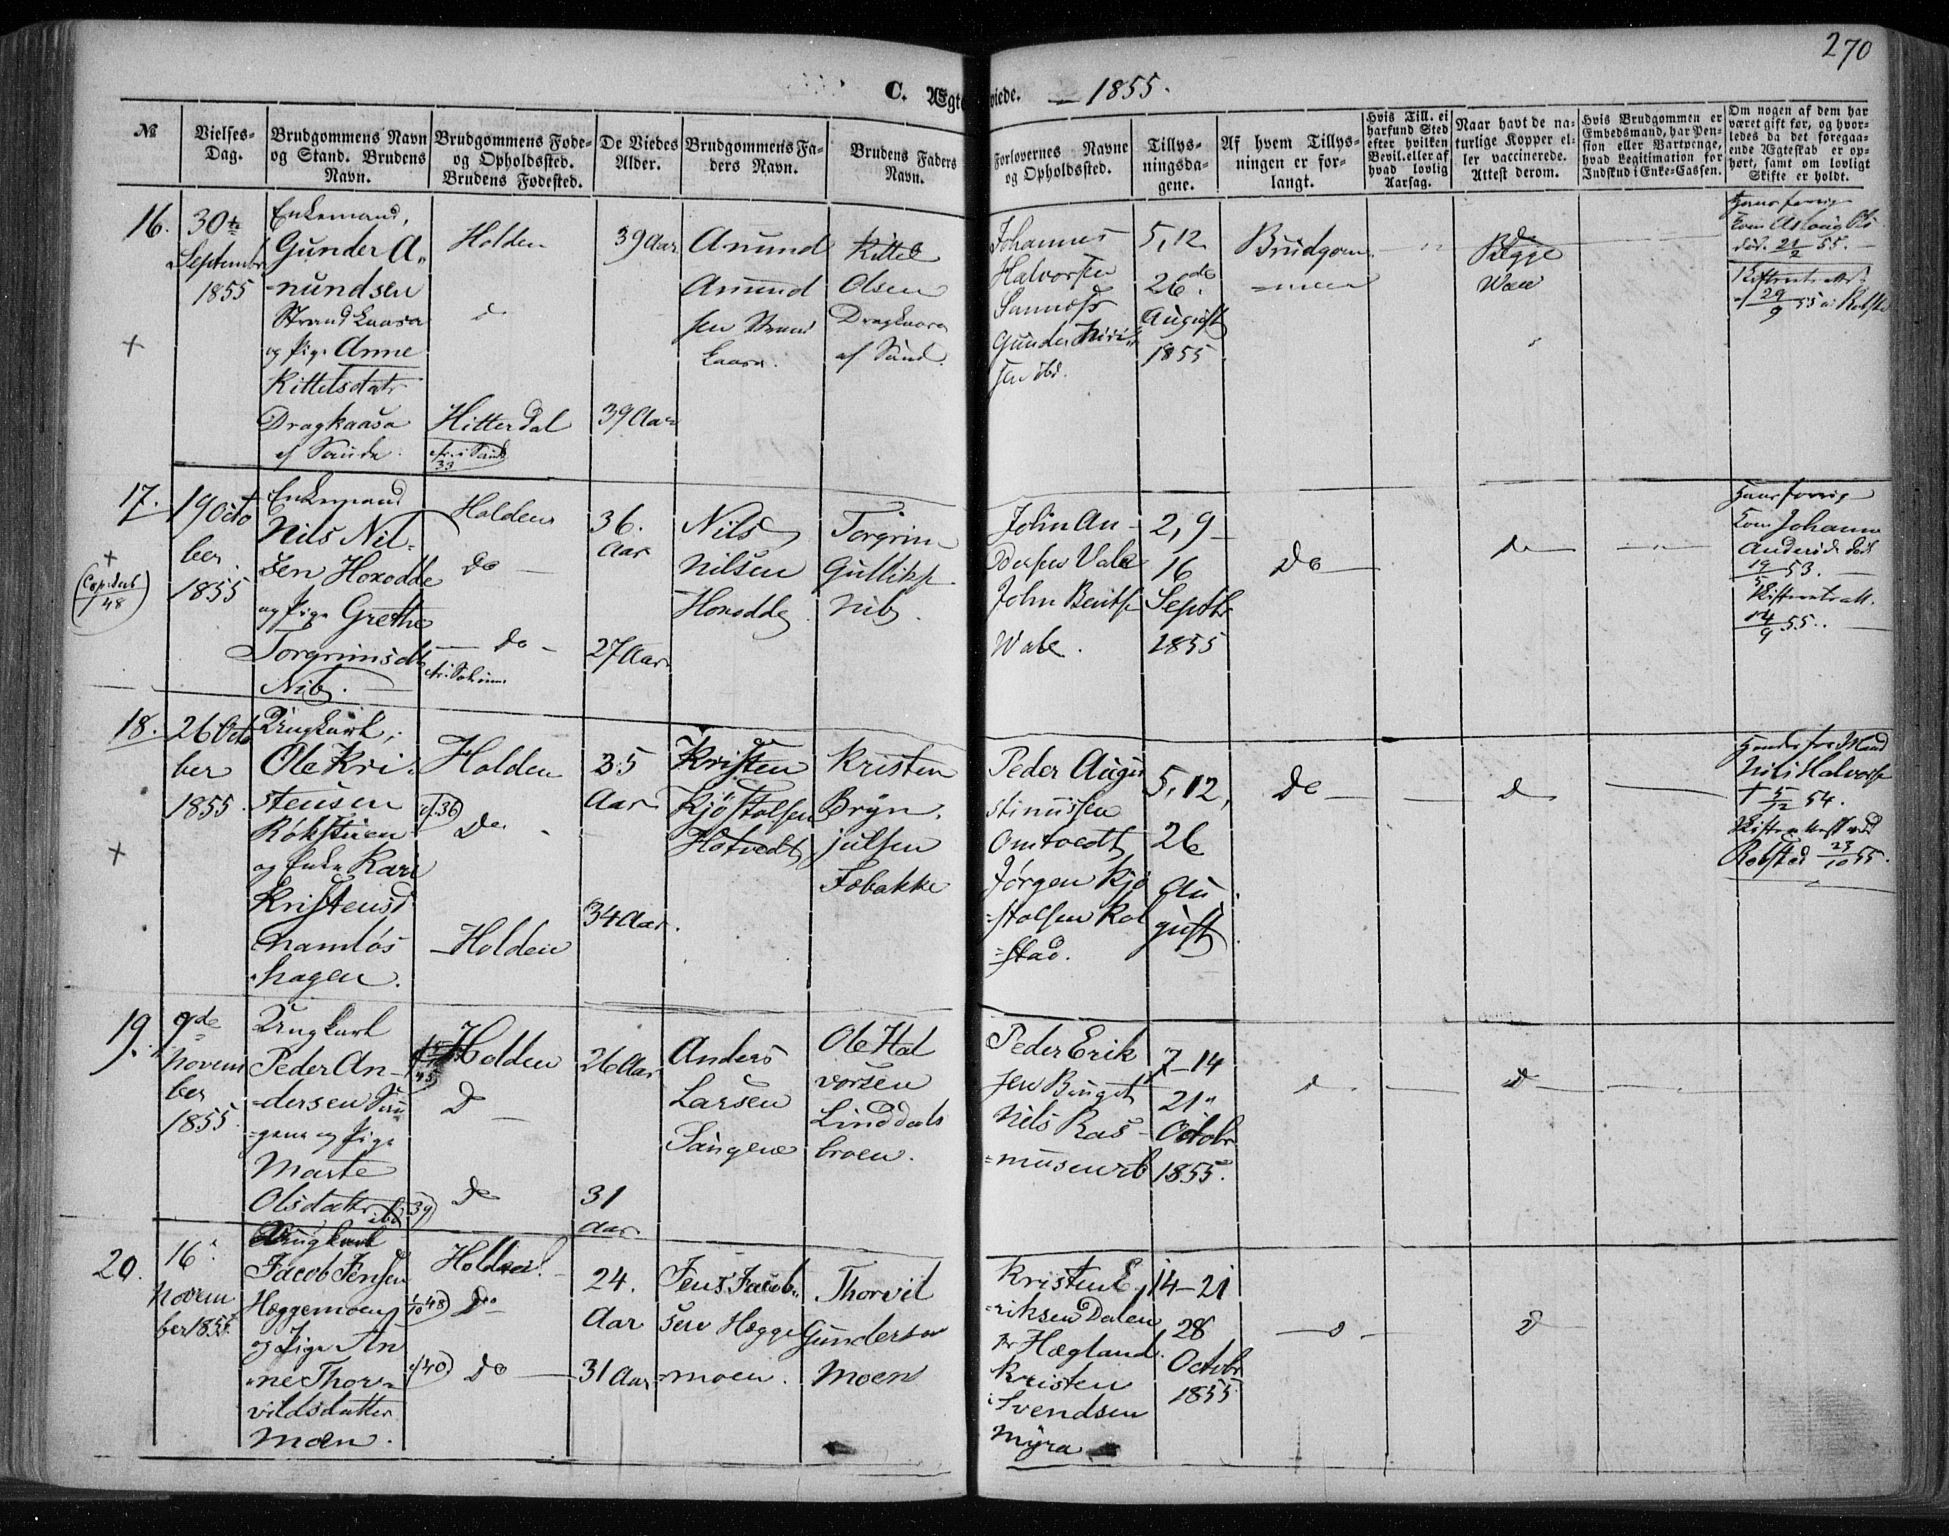 270
C. Ægteviede. — 1855.
№
Vielses-
Dag.
Brudgommens Navn
og Stand. Brudens
Navn.
Brudgommens Føde-
og Opholdssted.
Brudens Fødested.
De Viedes
Alder.
Brudgommens Fa-
ders Navn.
Brudens Faders
Navn.
Forlovernes Navne
og Opholdssted.
Tillys-
ningsda-
gene.
Af hvem Tillys-
ningen er for-
langt.
Hvis Till. ei
har fund Sted
efter hvilken
Bevil. eller af
hvad lovlig
Aarsag.
Naar havt de na-
turlige Kopper el-
ler vaccinerede.
Attest derom.
Hvis Brudgommen er
Embedsmand, har Pen-
sion eller Vartpenge,
hvad Legitimation for
Indskud i Enke-Cassen.
Om nogen af dem har
været gift før, og hvor-
ledes da det foregaa-
ende Ægteskab er op-
hørt, samt om lovligt
Skifte er holdt.
16.
30te
September
1855
Enkemand,
Gunder A-
nundsen
Strandkaasa
og Pige Anne
Kittelsdatr
Dragkaasa
af Saude.
Holden
d
Hitterdal
39 Aar
39 Aar
Anund
Anund
sen Strand
kaasa.
Kittel
Olsen
Dragkaasa
af Saude.
Johannes
Halvorsen
Gunder
sen ibd.
5, 12
26de
August
1855
Brudgom-
men
Begge
Vacc
Hans forrige
Kone Aslaug Ols
død. 21/2 55.
29/9 55
17.
+
19 Octo
ber
1855
Enkemand
Nils Nil-
sen Hoxodde
og Pige Grethe
Torgrimsdtr
Nibg.
Holden
Do
Do
36.
Aar
27 Aar
Nils
Nilsen
Hoxodde
Torgrim
Gulliks.
Nibg.
John An-
dersen Vale
John Bentsen
Wale.
2, 9
16
Septbr
1855
Do
Do
Hans forrige
Kone Johanne
Andersd. død
19/5 53.
14/9 55.
18.
+
26 Octo
ber
1855.
Ungkarl,
Ole Kri-
stensen
Røkstuen
og Enke Kari
Kristensd
Namløs
hagen.
Holden
Do.
Holden
35
Aar
34 Aar.
Kristen
Kjøstolsen
Hotvedt
Kristen
Bryn-
julsen
Febakke
Peder Augu
stinussen
Omtvedt
Jørgen Kjø
stolsen Rol
stad.
5, 12,
26
Au-
gust
Do
D
Hendes for. Mand
Nils Halvorsen
† 5/12 54.
Rolstad 23/10 55.
19.
9de
Novem
ber
1855.
Ungkarl
Peder An-
dersen Sau-
gene og Pige
Marte
Olsdatter ibd
39)
Holden
D
Do
26 Aar
31
Aar
Anders
Larsen
Saugene
Ole Hal
vorsen
Linddals
broen.
Peder Erik
sen
Nils Ras-
musen ib
7-14
21
Octobr
1855.
d
D
20.
16
Novem
ber 1855
Ungkarl
Jacob Jensen
Hæggemoen
og Pige An
ne Thor-
vildsdatter
Moen.
Holden.
Do
Do
24.
Aar
31 Aar
Jens Jacob-
sen Hægge
moen.
Thorvil
Gundersen
Moen
Kristen E-
riksen Dalen
Hægland.
Kristen
Svendsen
Myra
14-21
28
Octobr
1855.
D
D